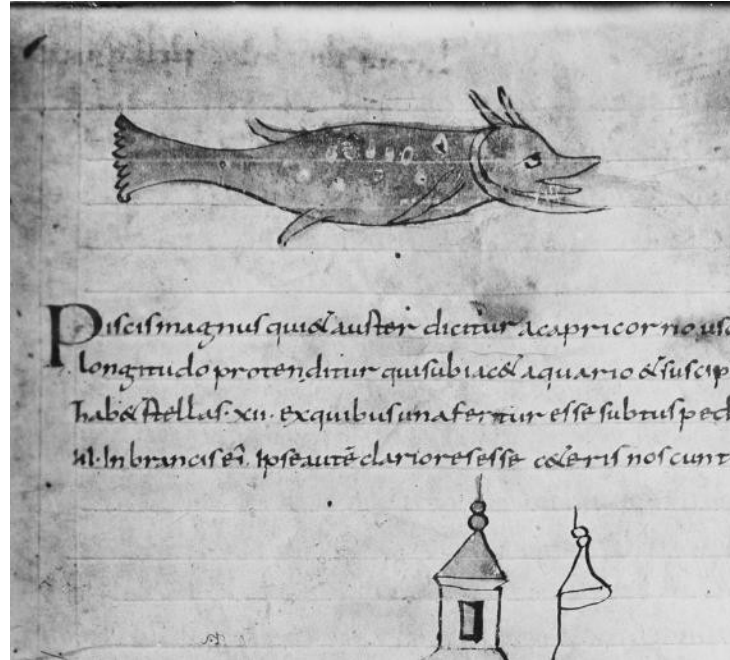 Piscis magnus qui& auster dicitur a capricorno usq
longitudo protenditur qui subiac& aquario & suscip
hab& stellas · xii · ex quibus una fertur esse subtus ped
In brancis eī. Ipse autē clariores esse c&eris noscunt